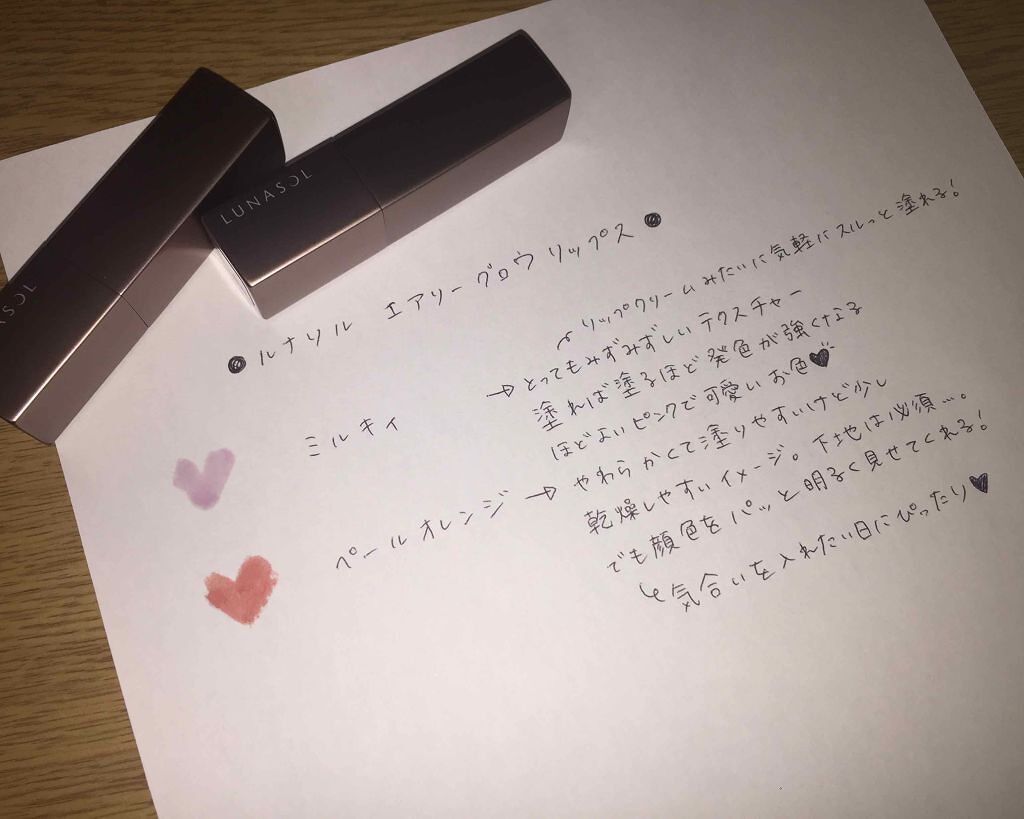 LUNASOL
LUNASOL
●ルナソル エアリーグロウリップス●
リップクリームみたいに気軽にスルっと塗れる!
ミルキィ → とってもみずみずしいテクスチャー
塗れば塗るほど発色が強くなる
ほどよいピンクで可愛いお色♥
ペールオレンジ → やわらかくて塗りやすいけど少し
乾燥しやすいイメージ。下地は必須…。
でも顔色をパッと明るく見せてくれる!
↳気合いを入れたい日にぴったり♥